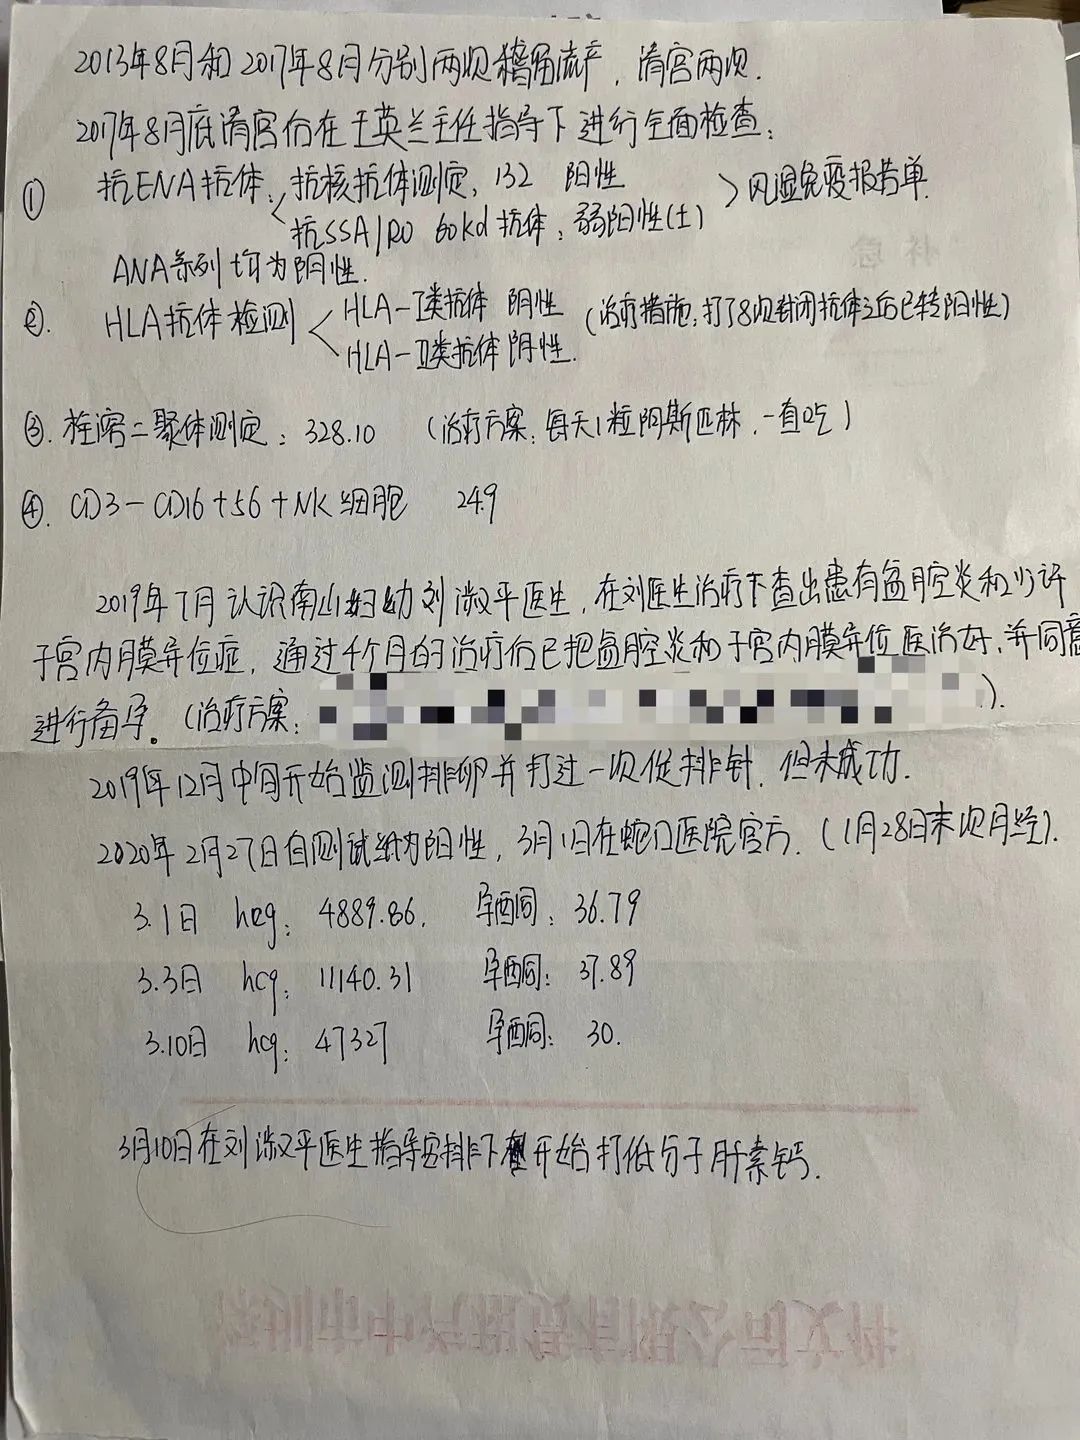 2013年8月和2017年8月分别两次稽留流产，清宫两次.
2017年8月底清宫后在王英兰主任指导下进行全面检查：
① 抗ENA抗体：抗核抗体测定：132 阳性
抗SSA/RO 60kd抗体：弱阳性(±) >风湿免疫报告单.
ANA系列均为阴性.
②. HLA抗体检测 HLA-I类抗体 阴性 (治疗措施：打了8次封闭抗体之后已转阳性)
HLA-II类抗体阴性.
③. 栓溶二聚体测定：328.10 (治疗方案：每天1粒阿斯匹林，一直吃)
④. CD3-CD16+56+NK细胞 24.9
2019年7月认识南山妇幼刘淑平医生，在刘医生治疗下查出患有盆腔炎和少许
子宫内膜异位症，通过4个月的治疗后已把盆腔炎和子宫内膜异位医治好，并同意
进行备孕。(治疗方案： ).
2019年12月中旬开始监测排卵并打过一次促排针，但未成功.
2020年2月27日自测试纸为阳性，3月1日在蛇口医院官方. (1月28日末次月经).
3.1日 hcg： 4889.86. 孕酮同： 36.79
3.3日 hcg： 11140.31 孕酮同： 37.89
3.10日 hcg： 47327 孕酮同： 30.
3月10日在刘淑平医生指导安排下开始打低分子肝素钙.